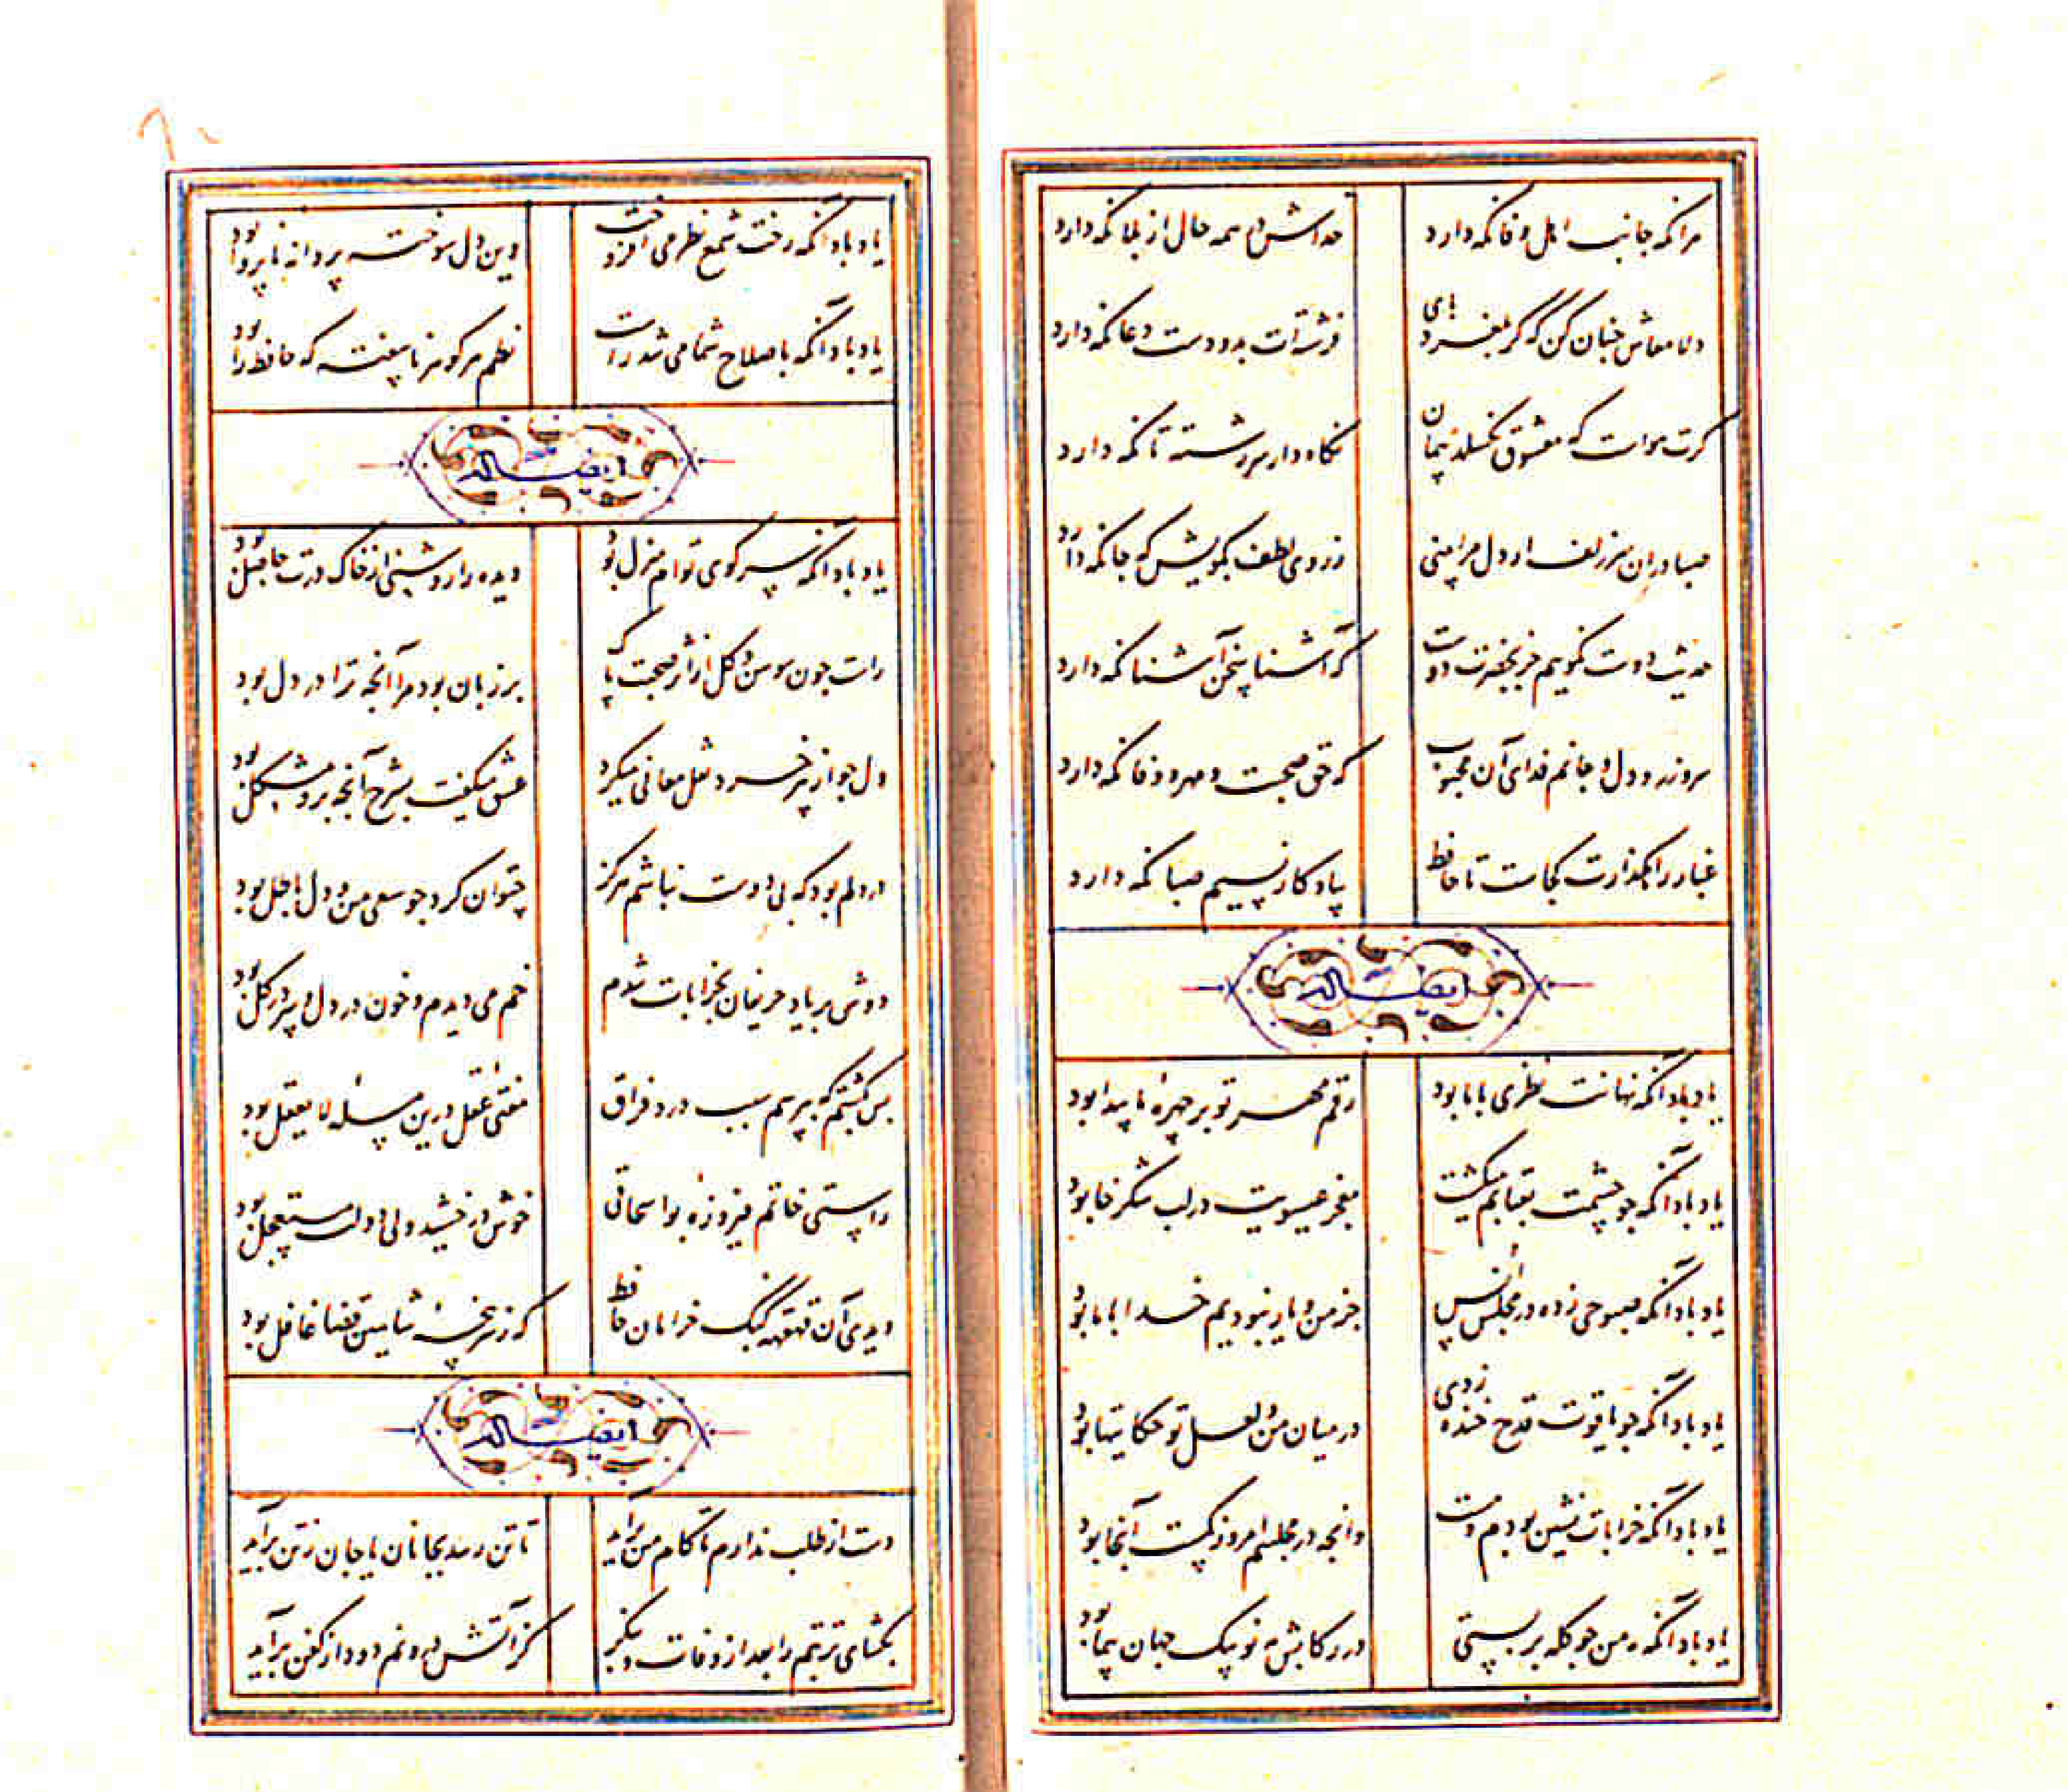 هرانکه جانب اهل وفا نکه دارد خداش در همه حال از بلا نکه دارد
دلا معاش چنان کن که کر بلغزد پای فرشته ات بدو دست دعا نکه دارد
کرت هواست که معشوق نکسلد پیمان نکاه دار سر رشته تا نکه دارد
صبا دران سر زلف ار دل مرا بینی ز روی لطف بکویش که جا نکه دارد
حدیث دوست نکویم مکر بحضرت دوست که آشنا سخن آشنا نکه دارد
سر و زر و دل و جانم فدای آن محبوب که حق صحبت و مهر و وفا نکه دارد
غبار راهکذارت کجاست تا حافظ بیادکار نسیم صبا نکه دارد
ایضاً له
یاد باد آنکه نهانت نظری با ما بود رقم مهر تو بر چهرهٔ ما پیدا بود
یاد باد آنکه چو چشمت بعتابم میکشت معجز عیسویت در لب شکرخا بود
یاد باد آنکه صبوحی زده در مجلس انس جز من و یار نبودیم خدا با ما بود
یاد باد آنکه چو یاقوت قدح خنده زدی در میان من و لعل تو حکایتها بود
یاد باد آنکه خرابات نشین بودم و مست وانچه در مجلسم امروز کمست آنجا بود
یاد باد آنکه مه من چو کله بر بستی در رکابش مه نو پیک جهان پیما بود
یاد باد آنکه رخت شمع نظر می افروخت وین دل سوخته پروانه ناپروا بود
یاد باد آنکه باصلاح شما می شد راست نظم هر کوهر ناسفته که حافظ را بود
ایضاً له
یاد باد آنکه سر کوی توام منزل بود دیده را روشنی از خاک درت حاصل بود
راست چون سوسن و کل از اثر صحبت پاک بر زبان بود مرا آنچه ترا در دل بود
دل چو از پیر خرد نقل معانی میکرد عشق میکفت بشرح آنچه برو مشکل بود
در دلم بود که بی دوست نباشم هرکز چتوان کرد چو سعی من و دل باطل بود
دوش بر یاد حریفان بخرابات شدم خم می دیدم و خون در دل و پا در کل بود
بس بکشتم که بپرسم سبب درد فراق مفتی عقل درین مسئله لا یعقل بود
راستی خاتم فیروزهٔ بواسحاقی خوش درخشید ولی دولت مستعجل بود
دیدی آن قهقههٔ کبک خرامان حافظ که ز سرپنجهٔ شاهین قضا غافل بود
ایضاً له
دست از طلب ندارم تا کام من برآید تا تن رسد بجانان یا جان ز تن برآید
بکشای تربتم را بعد از وفات و بنکر کز آتش درونم دود از کفن برآید